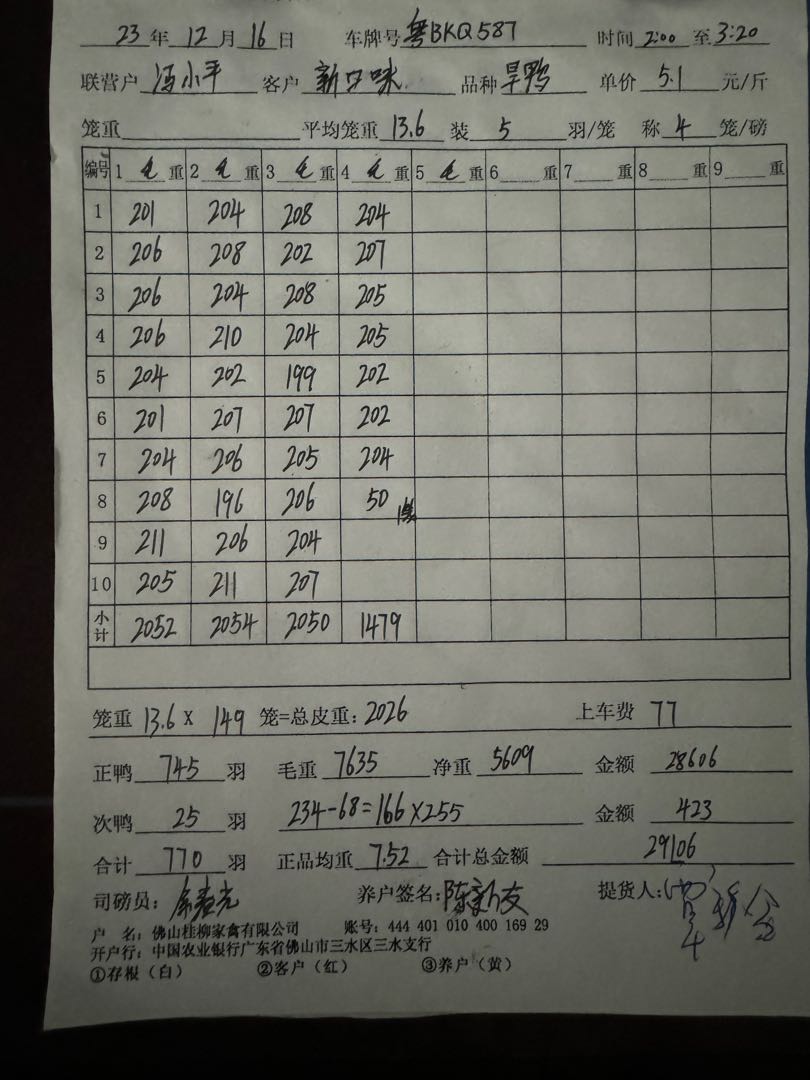 23年12月16日 车牌号 粤BKQ587 时间 2:00 至 3:20
联营户 冯小平 客户 新口味 品种 旱鸭 单价 5.1 元/斤
笼重 平均笼重 13.6 装 5 羽/笼 称 4 笼/磅
编号 1 毛 重 2 毛 重 3 毛 重 4 毛 重 5 毛 重 6 重 7 重 8 重 9 重
1 201 204 208 204
2 206 208 202 207
3 206 204 208 205
4 206 210 204 205
5 204 202 199 202
6 201 207 207 202
7 204 206 205 204
8 208 196 206 50
9 211 206 204
10 205 211 207
小计 2052 2054 2050 1479
笼重 13.6 X 149 笼=总皮重: 2026 上车费 77
正鸭 745 羽 毛重 7635 净重 5609 金额 28606
次鸭 25 羽 234-68=166×255 金额 423
合计 770 羽 正品均重 7.52 合计总金额 29106
司磅员: 养户签名: 陈新友 提货人:
户 名: 佛山桂柳家禽有限公司 账号: 444 401 010 400 169 29
开户行: 中国农业银行广东省佛山市三水区三水支行
①存根(白) ②客户(红) ③养户(黄)